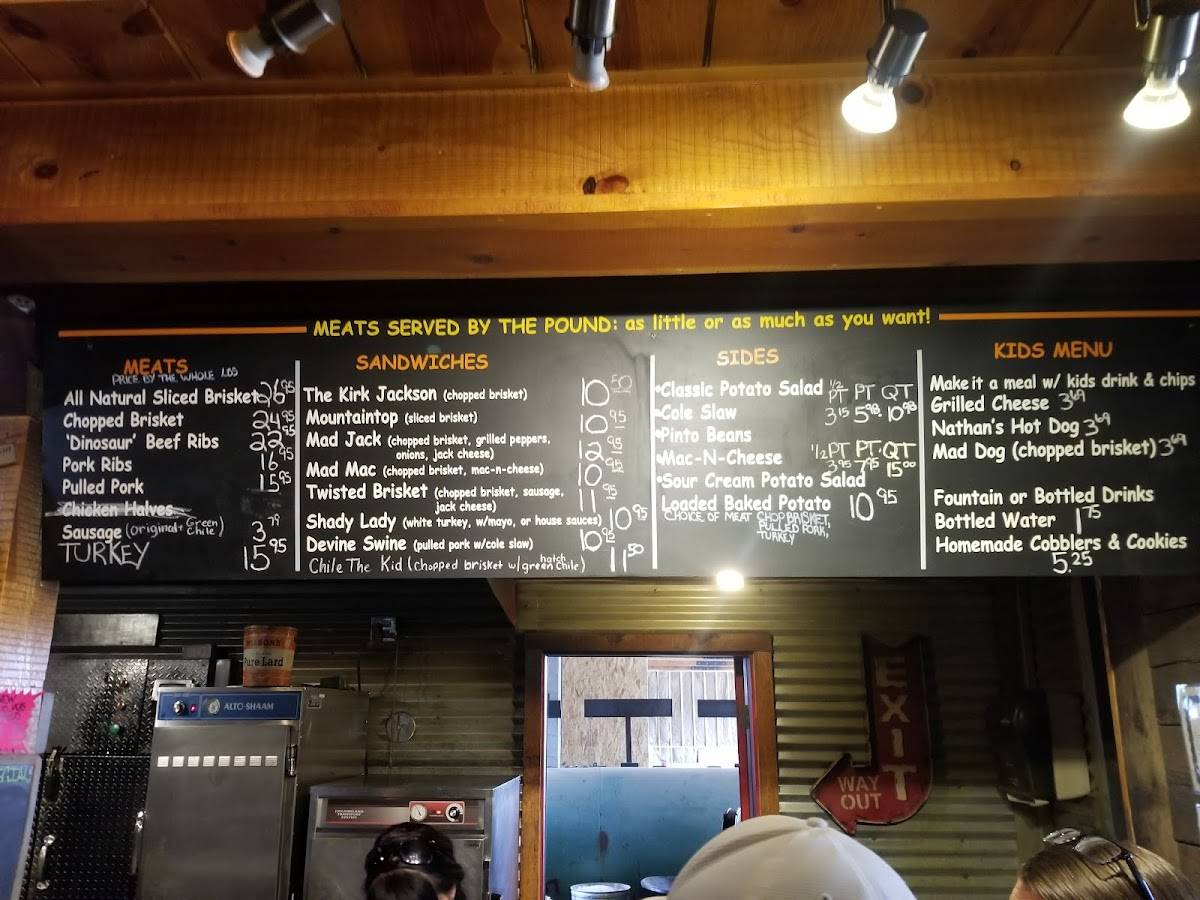 MEATS SERVED BY THE POUND: as little or as much as you want!
MEATS
PRICE BY THE WHOLE LBS
All Natural Sliced Brisket 26.95
Chopped Brisket 24.95
'Dinosaur' Beef Ribs 22.95
Pork Ribs 16.95
Pulled Pork 15.95
Chicken Halves
Sausage (original + Green Chile) 3.79
TURKEY 15.95
SANDWICHES
The Kirk Jackson (chopped brisket) 10.50
Mountaintop (sliced brisket) 10.95
Mad Jack (chopped brisket, grilled peppers, 12.95
onions, jack cheese)
Mad Mac (chopped brisket, mac-n-cheese) 10.95
Twisted Brisket (chopped brisket, sausage, 11.95
jack cheese)
Shady Lady (white turkey, w/mayo, or house sauces) 10.95
Devine Swine (pulled pork w/cole slaw) 10.95
Chile The Kid (chopped brisket w/ hatch green chile) 11.50
SIDES
•Classic Potato Salad 1/2 PT PT QT
•Cole Slaw 3.15 5.98 10.98
•Pinto Beans
•Mac-N-Cheese 1/2 PT PT. QT
3.95 7.95 15.00
•Sour Cream Potato Salad
Loaded Baked Potato 10.95
CHOICE OF MEAT CHOP BRISKET,
PULLED PORK,
TURKEY
KIDS MENU
Make it a meal w/ kids drink & chips
Grilled Cheese 3.69
Nathan's Hot Dog 3.69
Mad Dog (chopped brisket) 3.69
Fountain or Bottled Drinks
Bottled Water 1.75
Homemade Cobblers & Cookies
5.25
Pure Lard
ALTO-SHAAM
EXIT
WAY
OUT